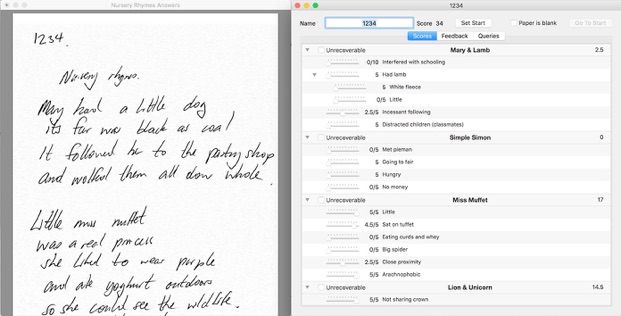 Nursery Rhymes Answers
1234.
Nursery rhymes.
Mary had a little dog
its fur was black as coal
It followed her to the pastry shop
and wolfed them all down whole.
Little miss muffet
was a real princess
she liked to wear purple
and ate yoghurt outdoors
so she could see the wildlife.
1234
Name 1234 Score 34 Set Start Paper is blank Go To Start
Scores Feedback Queries
Unreceverable Mary & Lamb 2.5
0/10 Interfered with schooling
5 Had lamb
5 White fleece
0/5 Little
2.5/5 Incessant following
5 Distracted children (classmates)
Unreceverable Simple Simon 0
0/5 Met pieman
5 Going to fair
5 Hungry
0/5 No money
Unreceverable Miss Muffet 17
5/5 Little
4.5/5 Sat on tuffet
0/5 Eating curds and whey
0/5 Big spider
2.5/5 Close proximity
5/5 Arachnophobic
Unreceverable Lion & Unicorn 14.5
5/5 Not sharing crown